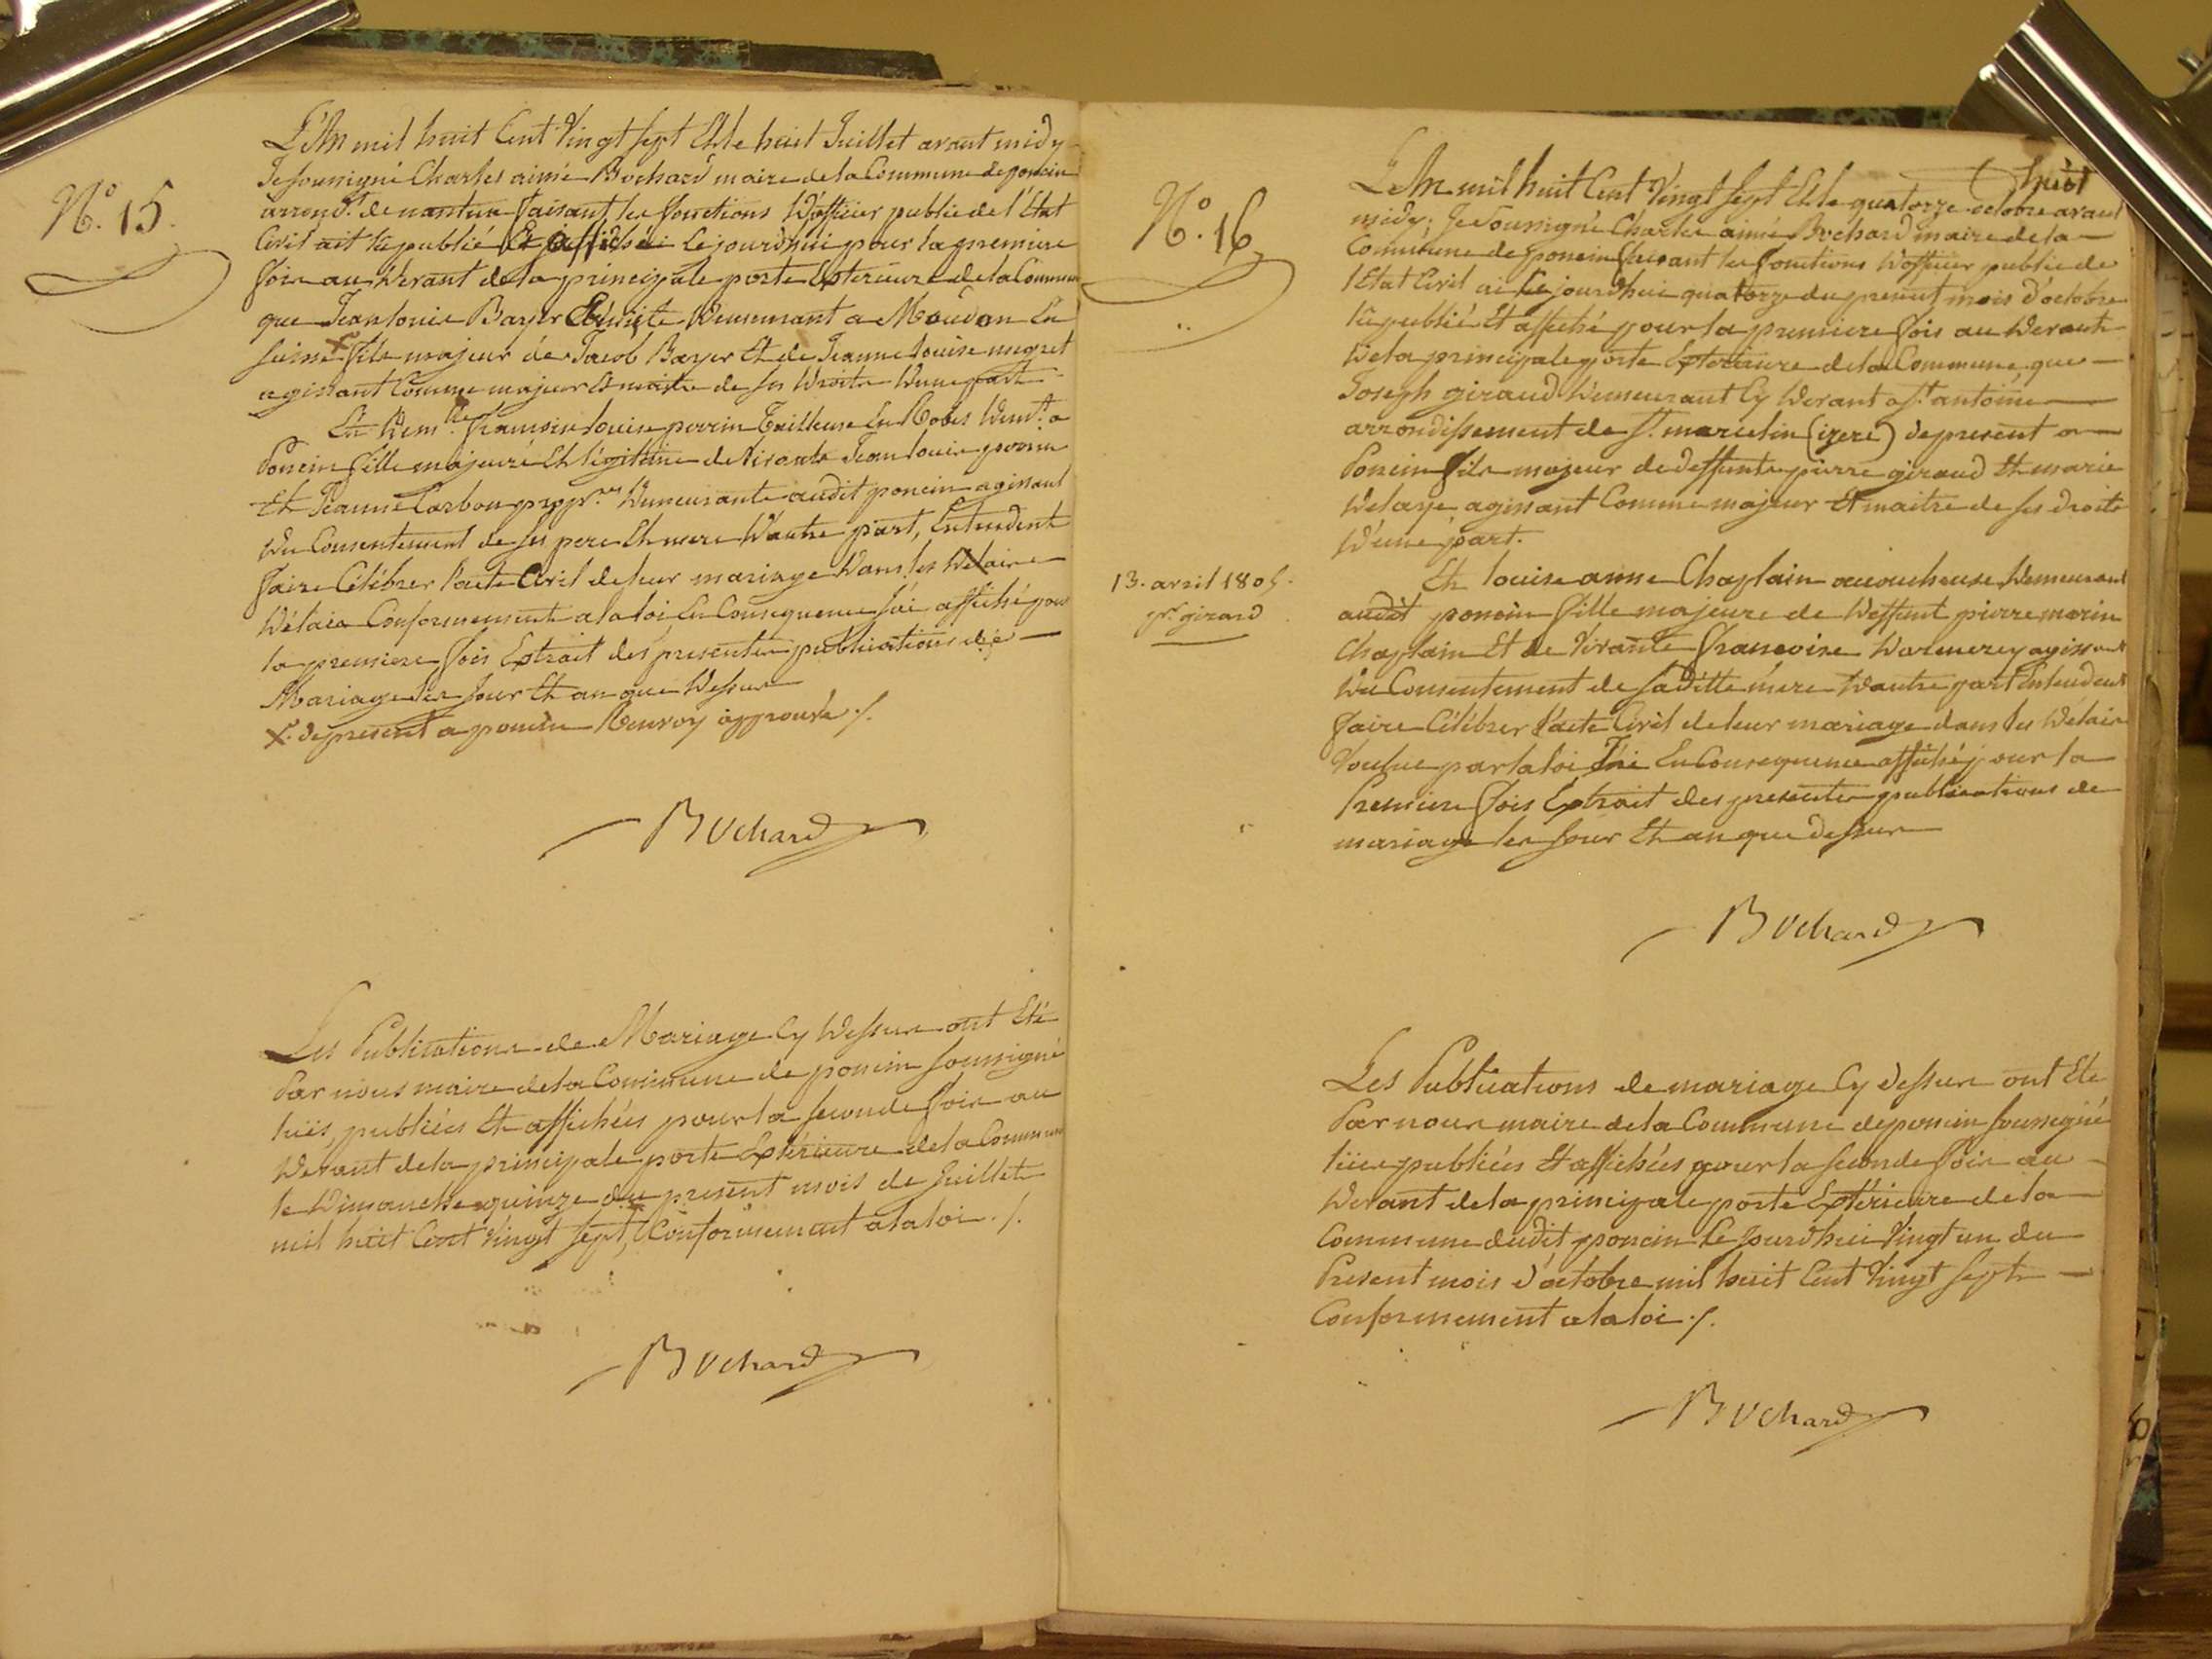 N.o 15.
L'An mil huit Cent Vingt sept Et le huit Juillet avant midy
Je soussigné Charles aimé Bochard maire de la Commune de poncin
arrond.t de nantua faisant les fonctions D'officier public de l'Etat
Civil ait lü publié Et affiché Cejourdhui pour la premiere
fois au devant de la principale porte Exterieure de la Commune
que Jean louis Bayer Demeurant a Moudon En
suisse x fils majeur de Jacob Bayer Et de Jeanne louise megret
agissant Comme majeur Et maitre de ses Droits Dune part
Et Dem.lle francoise louise perrin Tailleuse En Robes Dem.t a
Poncin fille majeure Et légitime de Vivants Jean louis perrin
Et Jeanne Carbon propr.res Demeurants audit poncin agissant
Du Consentement de ses pere Et mere D'autre part, Entendent
faire Célébrer l'acte Civil de leur mariage Dans les
Délais Conformement a la loi En Consequence j'ai affiché pour
la premiere fois Extrait des presentes publications de
Mariage les Jour Et an que Dessus
x. De present a poncin Renvoy approuvé ./.
Bochard
Les Publications de Mariage Cy Dessus ont Eté
Par nous maire de la Commune de poncin soussigné
lües, publiées Et affichées pour la seconde fois au
Devant de la principale porte Extérieure de la Commune
le Dimanche quinze du present mois de Juillet
mil huit Cent Vingt sept, Conformement a la loi ./.
Bochard
huit
N.o 16
L'An mil huit Cent Vingt sept Et le quatorze octobre avant
midy; Je soussigné Charles aimé Bochard maire de la
Commune de poncin faisant les fonctions D'officier public de
l'Etat Civil ai Cejourdhui quatorze du present mois d'octobre
lü publié Et affiché pour la premiere fois au Devant
De la principale porte Exterieure de la Commune que
Joseph giraud Demeurant Cy Devant a S.t antoine
arrondissement de S.t marcelin (izere) De present a
Poncin fils majeur de deffunts pierre giraud Et marie
Delaye agissant Comme majeur Et maitre de ses droits
D'une part.
13. avril 1805.
p.r girard
Et louise anne Chaplain accoucheuse Demeurant
audit poncin fille majeure de Deffunt pierre marin
Chaplain Et de Vivante francoise agissant
Du Consentement de saditte mere D'autre part Entendent
faire Célébrer l'acte Civil de leur mariage dans les Délais
Voulus par la loi J'ai En Consequence affiché pour la
Premiere fois Extrait des presentes publications de
mariage les Jour Et an que dessus
Bochard
Les Publications de mariage Cy dessus ont Eté
Par nous maire de la Commune de poncin soussigné
lües publiées Et affichées pour la seconde fois au
Devant de la principale porte Extérieure de la
Commune dudit poncin Cejourdhui Vingt un du
Present mois d'octobre mil huit Cent Vingt sept
Conformement a la loi ./.
Bochard